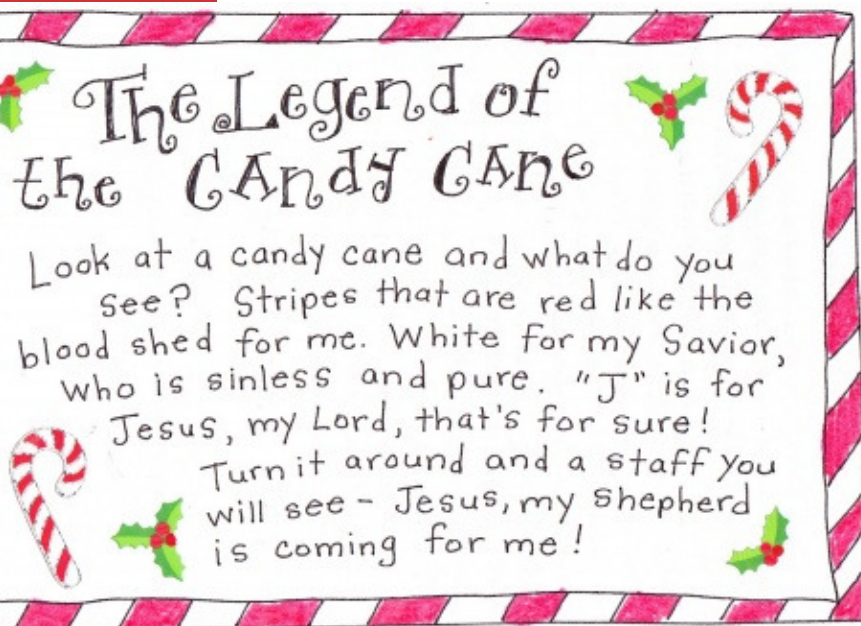 The Legend of
the CAndy CAne
Look at a candy cane and what do you
see? Stripes that are red like the
blood shed for me. White for my Savior,
who is sinless and pure. "J" is for
Jesus, my Lord, that's for sure!
Turn it around and a staff you
will see - Jesus, my Shepherd
is coming for me!